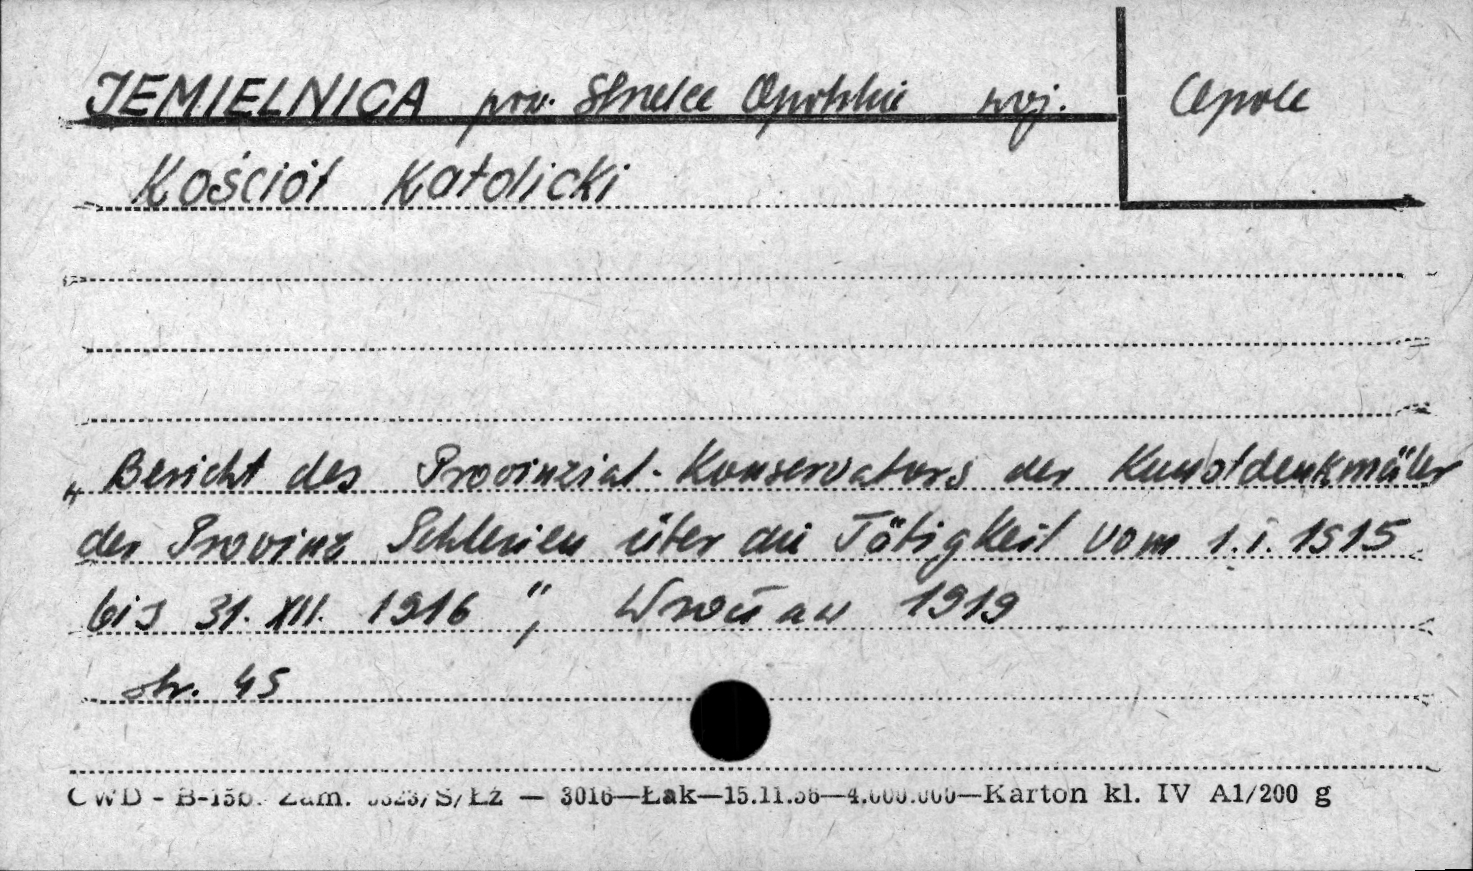 JEMIELNICA pow. Strzelce Opolskie woj. Opole
Kościół Katolicki
„Bericht des Provinzial-Konservators der Kunstdenkmäler
der Provinz Schlesien über die Tätigkeit vom 1.I.1915
bis 31.XII.1916", Wrocław 1919
str. 45
CWD - B-15b. Zam. 5523/S/Łż — 3016—Łak—15.11.56—4.000.000—Karton kl. IV A1/200 g